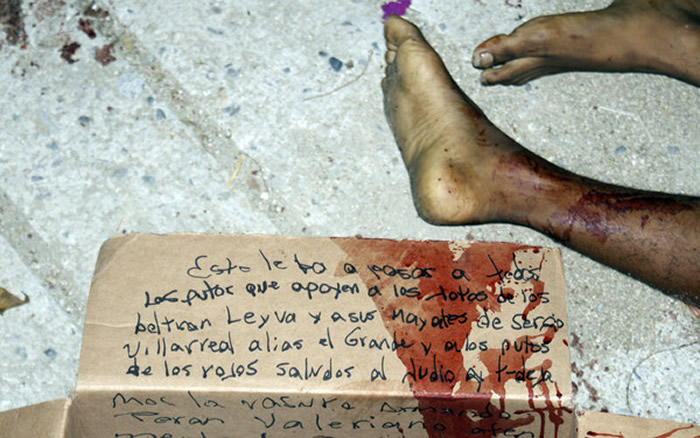 Esto le ba a pasar a todos
Los putos que apoyen a los de los
beltran Leyva y a sus Mayates de Sergio
Villarreal alias el Grande y a los putos
de los rojos Saludos al Judio
Moc la vasura Armando
Teran Valeriano aten